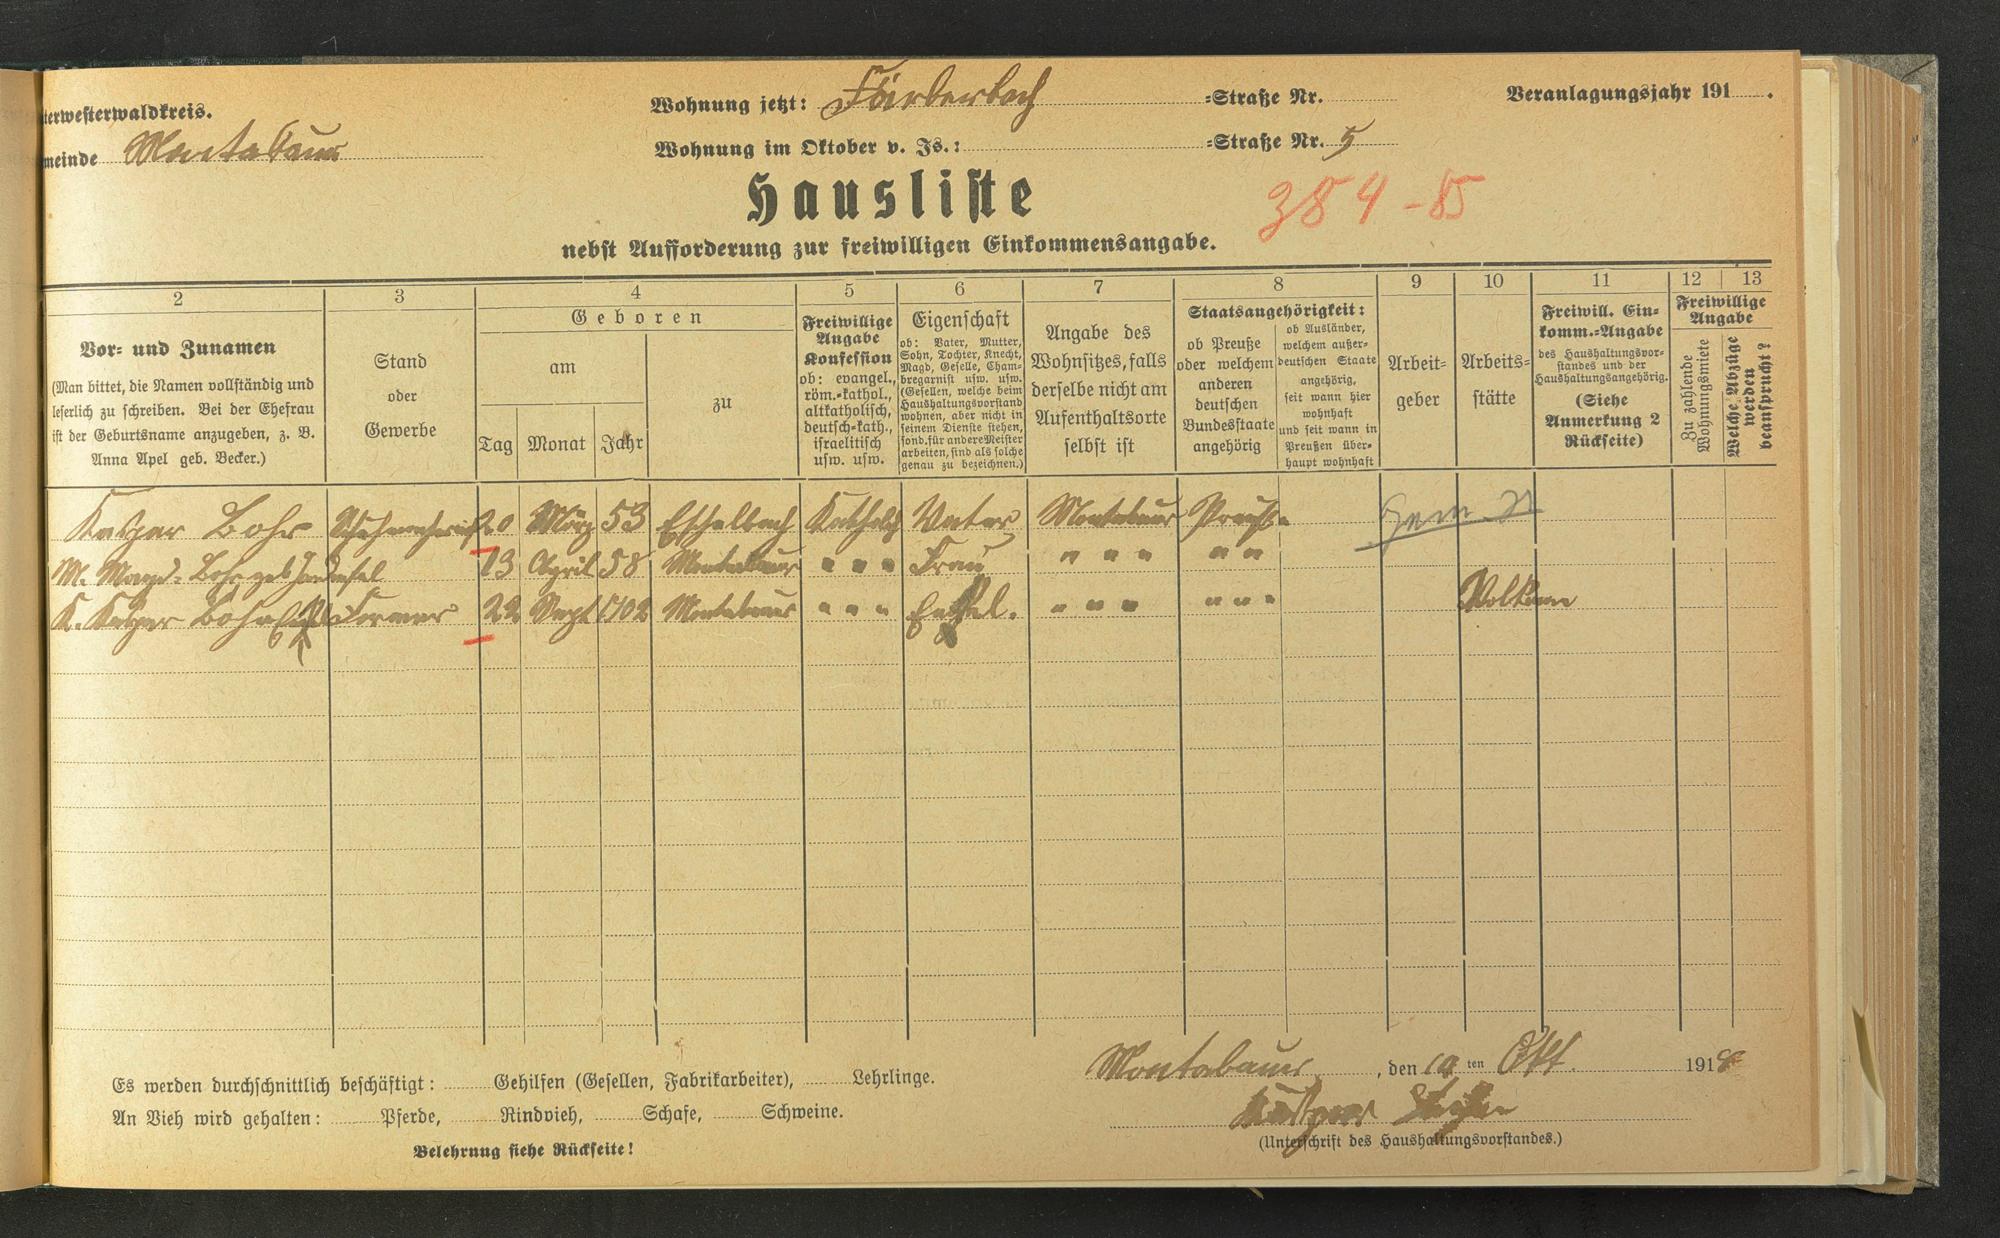 terwesterwaldkreis.
meinde Montabaur
Wohnung jetzt: Färberbach =Straße Nr.
Wohnung im Oktober v. Js.: =Straße Nr. 5
Veranlagungsjahr 191 .
Hausliste
384-85
nebst Aufforderung zur freiwilligen Einkommensangabe.
2 3 4 5 6 7 8 9 10 11 12 13
Vor= und Zunamen
(Man bittet, die Namen vollständig und
leserlich zu schreiben. Bei der Ehefrau
ist der Geburtsname anzugeben, z. B.
Anna Apel geb. Becker.)
Stand
oder
Gewerbe
Geboren
am
Tag Monat Jahr
zu
Freiwillige
Angabe
Konfession
ob: evangel.,
röm.=kathol.,
altkatholisch,
deutsch=kath.,
israelitisch
usw. usw.
Eigenschaft
ob: Vater, Mutter,
Sohn, Tochter, Knecht,
Magd, Geselle, Cham=
bregarnist usw. usw.
(Gesellen, welche beim
Haushaltungsvorstand
wohnen, aber nicht in
seinem Dienste stehen,
sond. für andere Meister
arbeiten, sind als solche
genau zu bezeichnen.)
Angabe des
Wohnsitzes, falls
derselbe nicht am
Aufenthaltsorte
selbst ist
Staatsangehörigkeit:
ob Preuße
oder welchem
anderen
deutschen
Bundesstaate
angehörig
ob Ausländer,
welchem außer=
deutschen Staate
angehörig,
seit wann hier
wohnhaft
und seit wann in
Preußen über=
haupt wohnhaft
Arbeit=
geber
Arbeits=
stätte
Freiwill. Ein=
komm.=Angabe
des Haushaltungsvor=
standes und der
Haushaltungsangehörig.
(Siehe
Anmerkung 2
Rückseite)
Freiwillige
Angabe
Zu zahlende
Wohnungsmiete
Welche Abzüge
werden
beansprucht?
Kaspar Bohr 20 März 53 Eschelbach Katholisch Vater Montabaur Preuße
M. Magd. Bohr geb. 13 April 58 Montabaur " " " Frau " " " " "
K. Kaspar Bohr Former 22 Sept 1902 Montabaur " " " Enkel. " " " " " "
Es werden durchschnittlich beschäftigt: Gehilfen (Gesellen, Fabrikarbeiter), Lehrlinge.
An Vieh wird gehalten: Pferde, Rindvieh, Schafe, Schweine.
Belehrung siehe Rückseite!
Montabaur, den ten Okt. 1918
(Unterschrift des Haushaltungsvorstandes.)